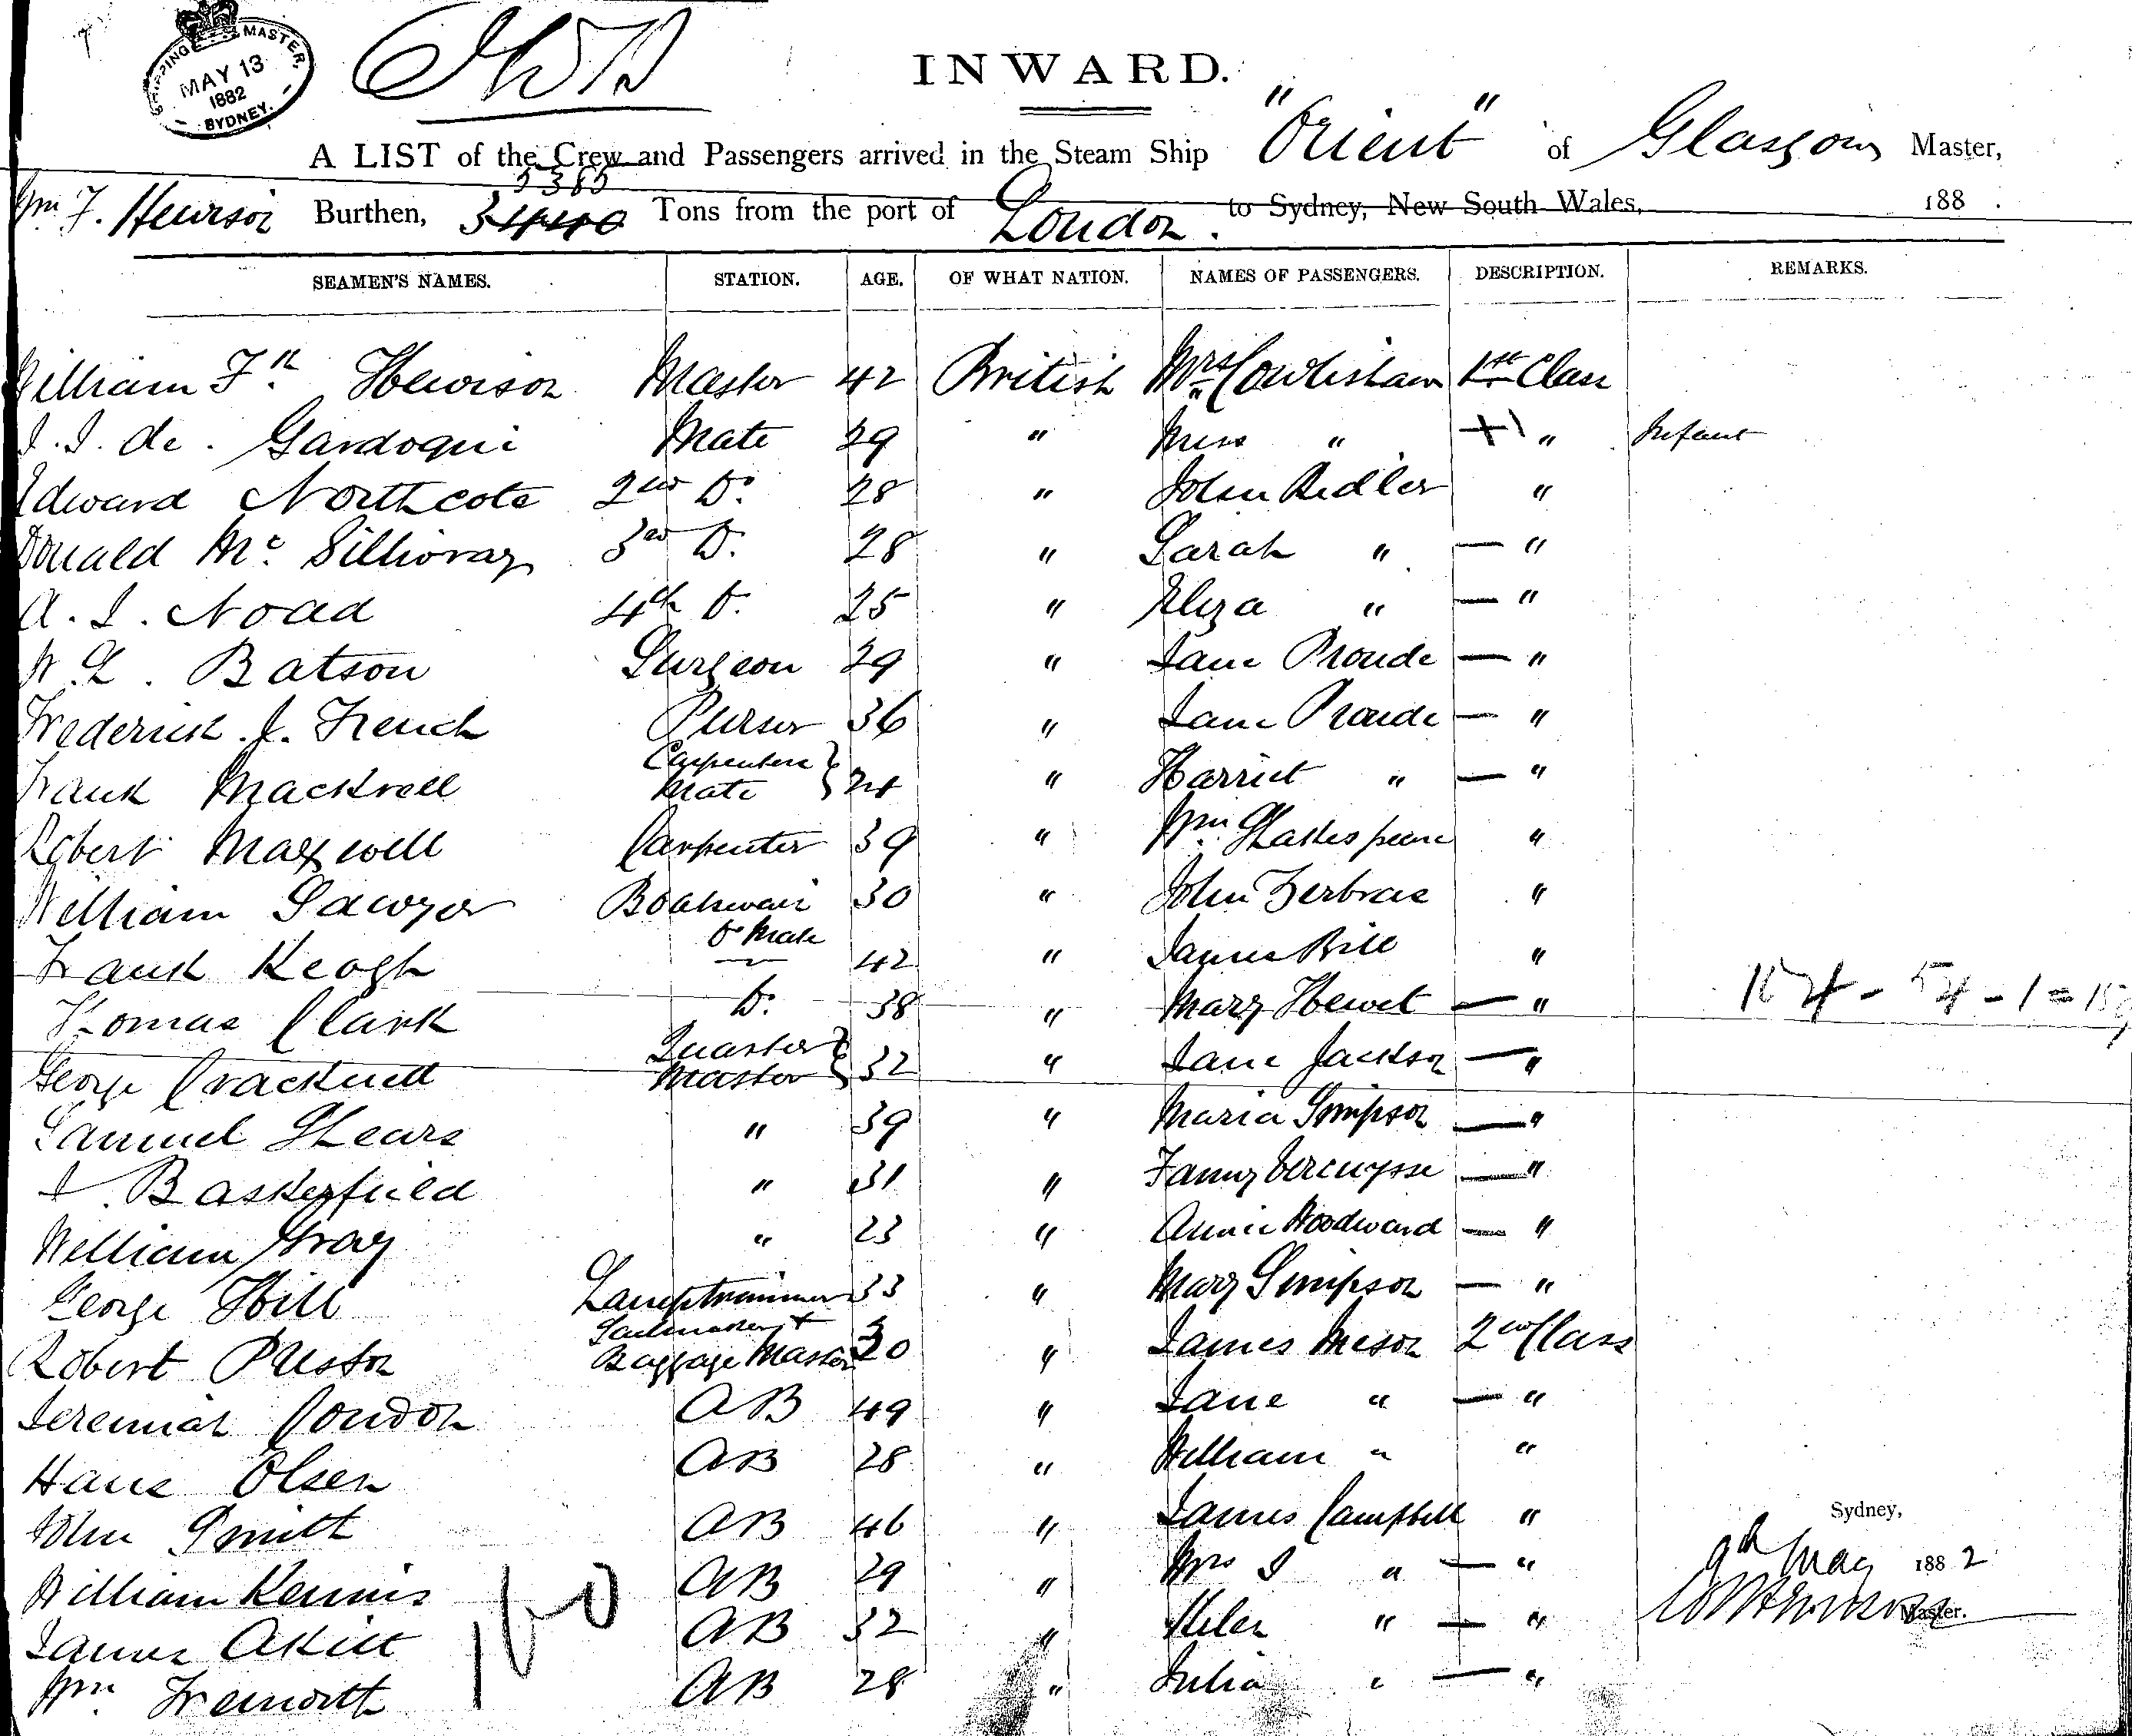 SHIPPING MASTER,
MAY 13
1882
SYDNEY.
INWARD.
A LIST of the Crew and Passengers arrived in the Steam Ship "Orient" of Glasgow Master,
5385
Wm F. Hewison Burthen, 3440 Tons from the port of London. to Sydney, New South Wales, 188 .
SEAMEN'S NAMES. STATION. AGE. OF WHAT NATION. NAMES OF PASSENGERS. DESCRIPTION. REMARKS.
William Fk. Hewison Master 42 British Mrs Cowlishaw 1st Class
J. J. de. Gardoqui Mate 29 " Miss " + 1 " Infant
Edward Northcote 2nd Do. 28 " John Ridler "
Donald Mc. Gillivray 3rd Do. 28 " Sarah " — "
A. J. Noad 4th Do. 25 " Eliza " — "
W. L. Batson Surgeon 29 " Jane Proude — "
Frederick J. French Purser 36 " Jane Proude — "
Frank Mackrell Carpenters Mate 24 " Harriet " — "
Robert Maxwell Carpenter 39 " Wm. Shakespeare "
William Sawyer Boatswain 30 " John Zerbrae "
Frank Keogh Do Mate 42 " James Bill "
Thomas Clark Do. 38 " Mary Hewet — "
George Cracknell Quarter Master 32 " Jane Jackson — "
Samuel Shears " 39 " Maria Simpson — "
J. Baskerfield " 31 " Fanny Vercuysse — "
William Gray " 23 " Annie Woodward — "
George Hill Lamptrimmer 33 " Mary Simpson — "
Robert Preston Sailmaker + Baggage Master 30 " James Meson 2nd Class
Jeremiah Condon AB 49 " Jane " — "
Hans Olsen AB 28 " William " "
John Smith AB 46 " James Campbell "
William Kennis AB 29 " Mrs J " — "
James Akitt AB 32 " Helen " — "
Wm. Tremorth AB 28 " Julia " — "
160
Sydney,
9th May 1882
Master.